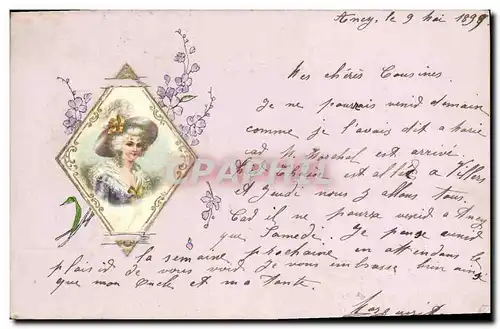 Ancy, le 9 Mai 1899
Mes chères Cousines.
Je ne pourrais venid demain
comme je l'avais dit a Marie
cad M. est arrivé.
est allé a Villers
et Jeudi nous y allons tous.
Cad il ne pourra venid a Ancy
que Samedi. Je pense venid
la semaine prochaine en attendans le
plaisid de vous void. Je vous embrasse bien ainsi
que mon Oncle et ma Tante.